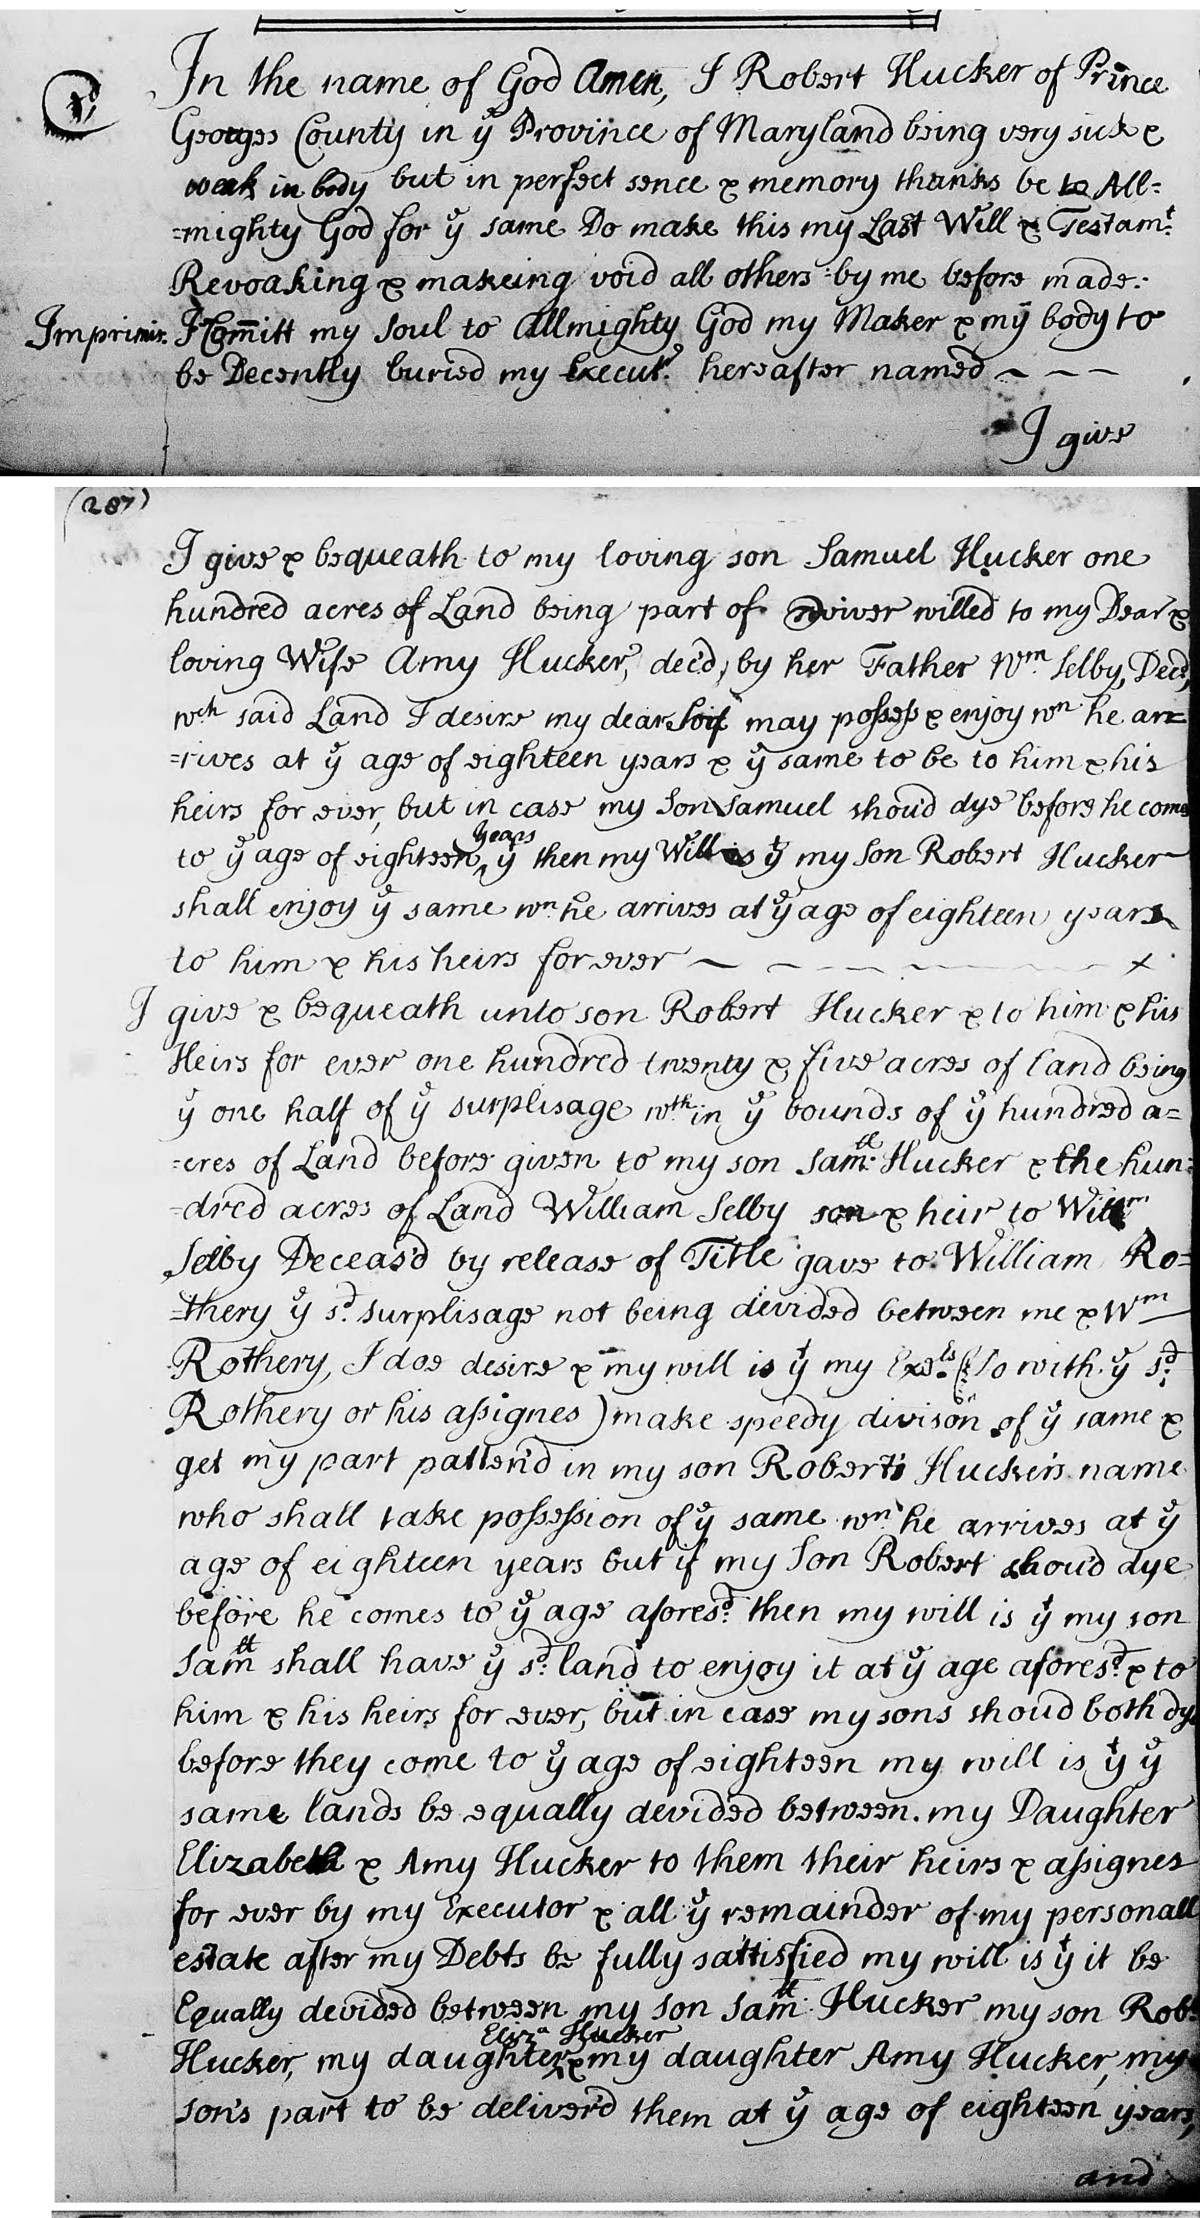 In the name of God Amen, I Robert Hucker of Prince
Georges County in ẙ Province of Maryland being very sick &
weak in body but in perfect sence & memory thanks be to All=
=mighty God for ẙ same Do make this my Last Will & Testamt.
Revoaking & makeing void all others by me before made:
Imprimis. I Com̄itt my Soul to Allmighty God my Maker & my body to
be Decently buried my Execut.r hereafter named ~ ~ ~
I give
(287)
I give & bequeath to my loving son Samuel Hucker one
hundred acres of Land being part of willed to my Dear &
loving Wife Amy Hucker, dec'd, by her Father Wm. Selby, Decd,
wch said Land I desire my dear may possess & enjoy wn he arr=
=rives at ẙ age of eighteen years & ẙ same to be to him & his
heirs for ever, but in case my Son Samuel shou'd dye before he come
to ẙ age of eighteen ^years ẙ then my Will is yt my Son Robert Hucker
shall enjoy ẙ same wn he arrives at ẙ age of eighteen years
to him & his heirs for ever ~ ~ ~ ~ ~ x
I give & bequeath unto son Robert Hucker & to him & his
Heirs for ever one hundred twenty & five acres of land being
ẙ one half of ẙ surplisage wth in ẙ bounds of ẙ hundred a=
=cres of Land before given to my son Samll. Hucker & the hun=
=dred acres of Land William Selby son & heir to Willm
Selby Deceas'd by release of Title gave to William Ro=
=thery ẙ sd. surplisage not being devided between me & Wm
Rothery, I doe desire & my will is yt my Exets. (so with ẙ sd.
Rothery or his assignes) make speedy divison of ẙ same &
get my part pattend in my son Roberts Huckers name
who shall take possession of ẙ same wn he arrives at ẙ
age of eighteen years but if my Son Robert shou'd dye
before he comes to ẙ age aforesd. then my will is yt my son
Samll shall have ẙ sd. land to enjoy it at ẙ age aforesd. & to
him & his heirs for ever, but in case my sons shoud both dye
before they come to ẙ age of eighteen my will is yt ẙ
same lands be equally devided between my Daughter
Elizabeth & Amy Hucker to them their heirs & assignes
for ever by my Executor & all ẙ remainder of my personall
estate after my Debts be fully sattisfied my will is yt it be
Equally devided between my son Samll Hucker my son Robt
Hucker, my daughter ^Eliza Hucker & my daughter Amy Hucker, my
son's part to be deliver'd them at ẙ age of eighteen years,
and